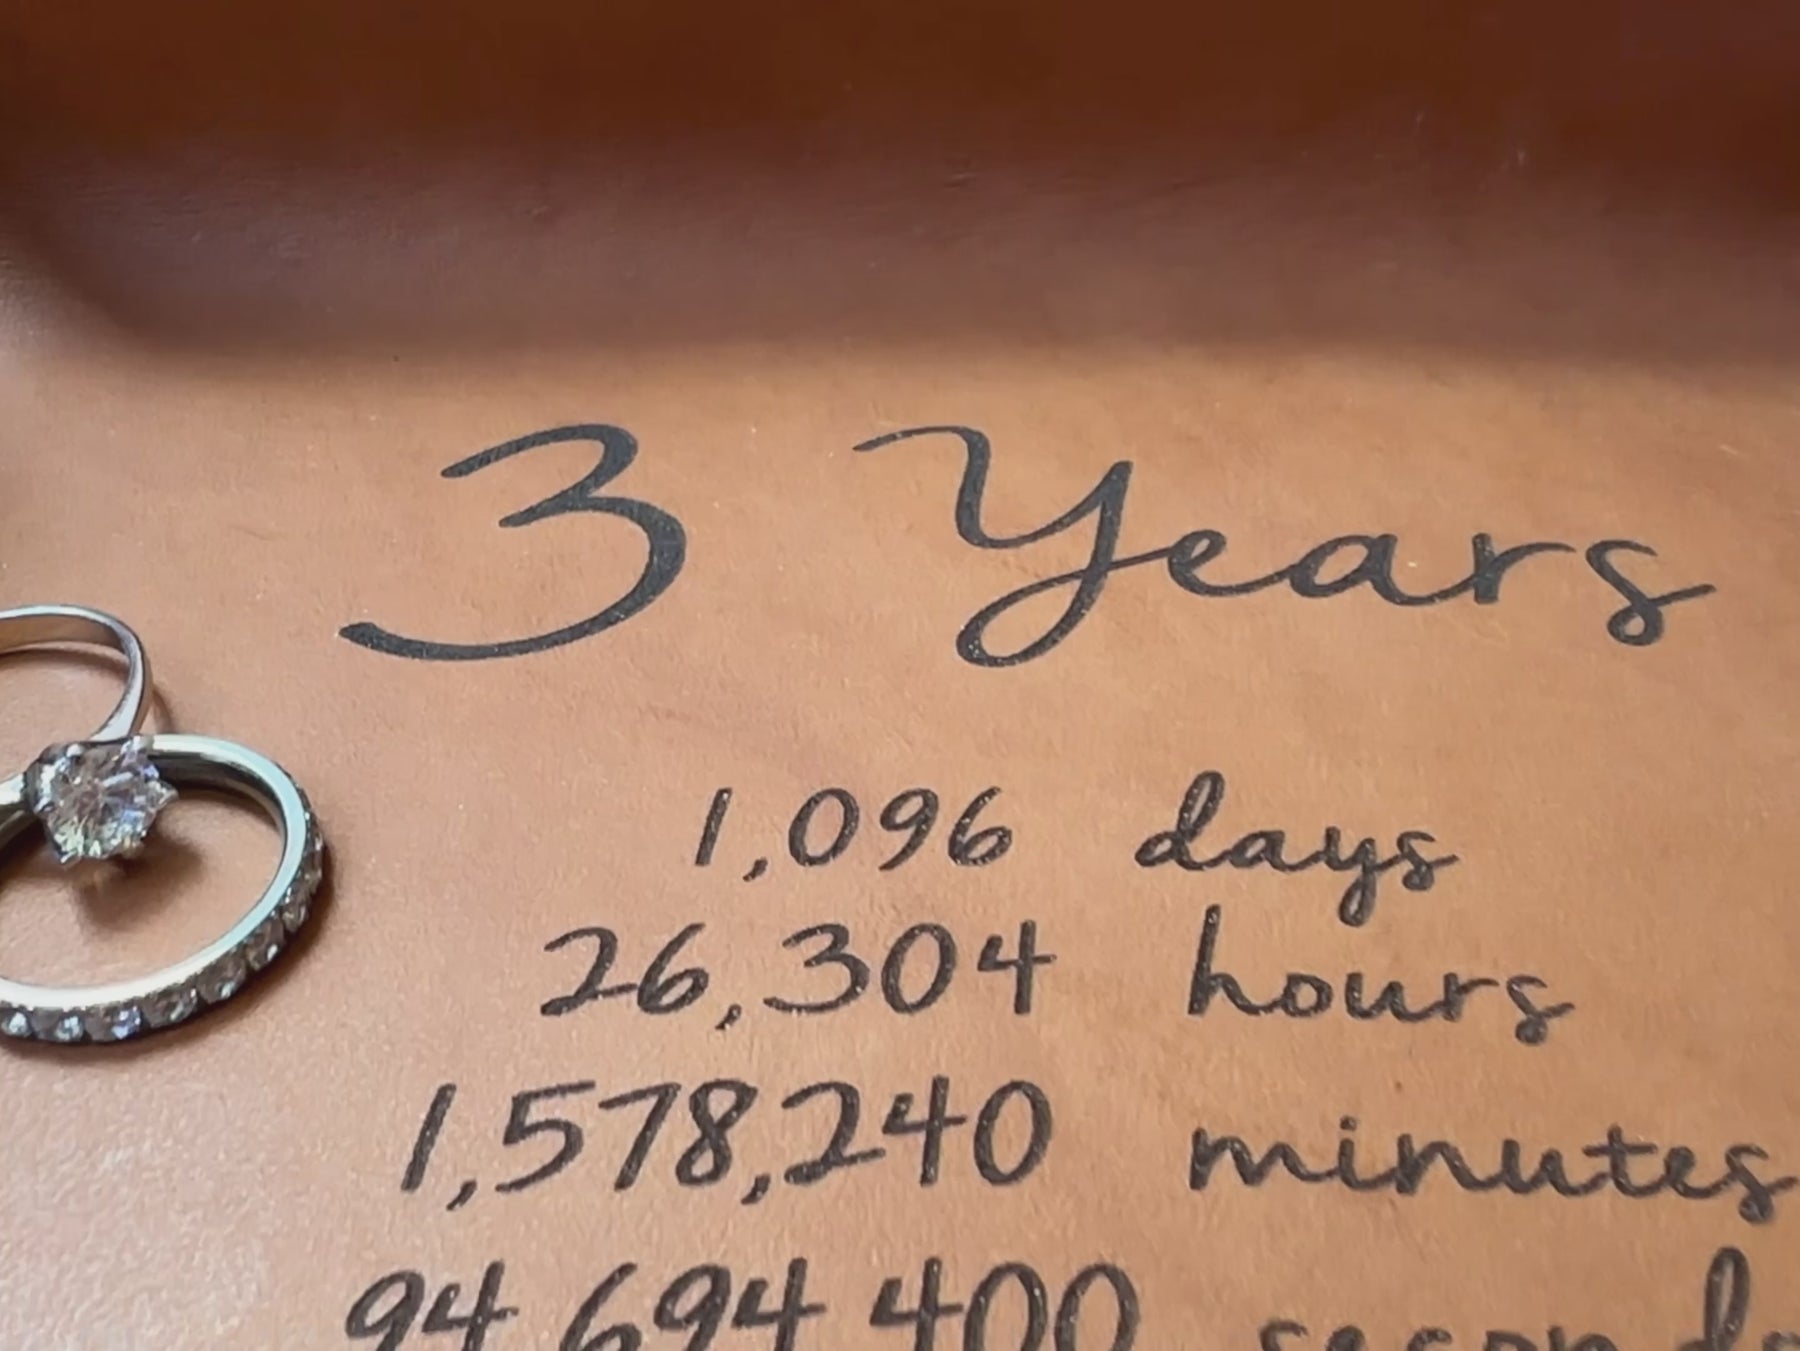 3 Years
1,096 days
26,304 hours
1,578,240 minutes
94,694,400 seconds